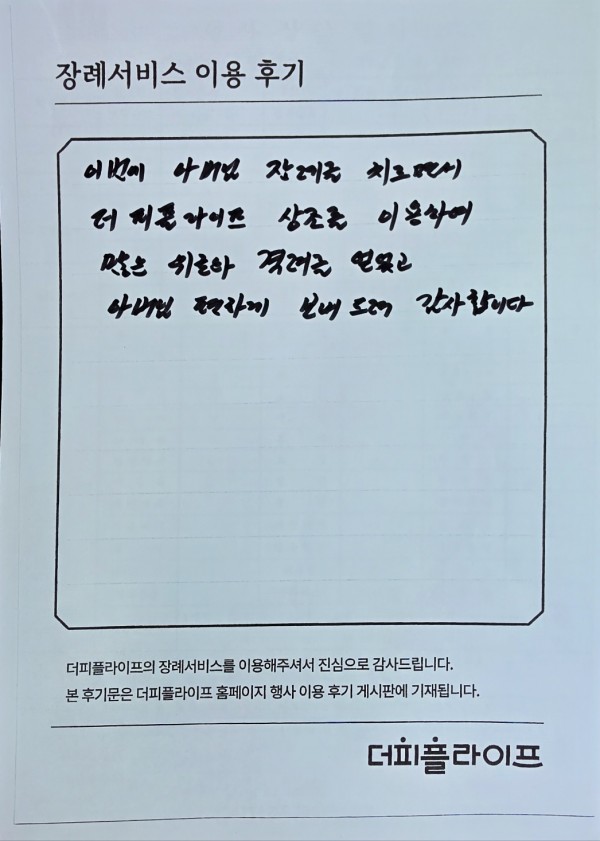 장례서비스 이용 후기
이번에 아버님 장례를 치르면서
더 피플 라이프 상조를 이용하여
많은 위로와 격려를 얻었고
아버님 편하게 보내 드려 감사합니다
더피플라이프의 장례서비스를 이용해주셔서 진심으로 감사드립니다.
본 후기문은 더피플라이프 홈페이지 행사 이용 후기 게시판에 기재됩니다.
더피플라이프